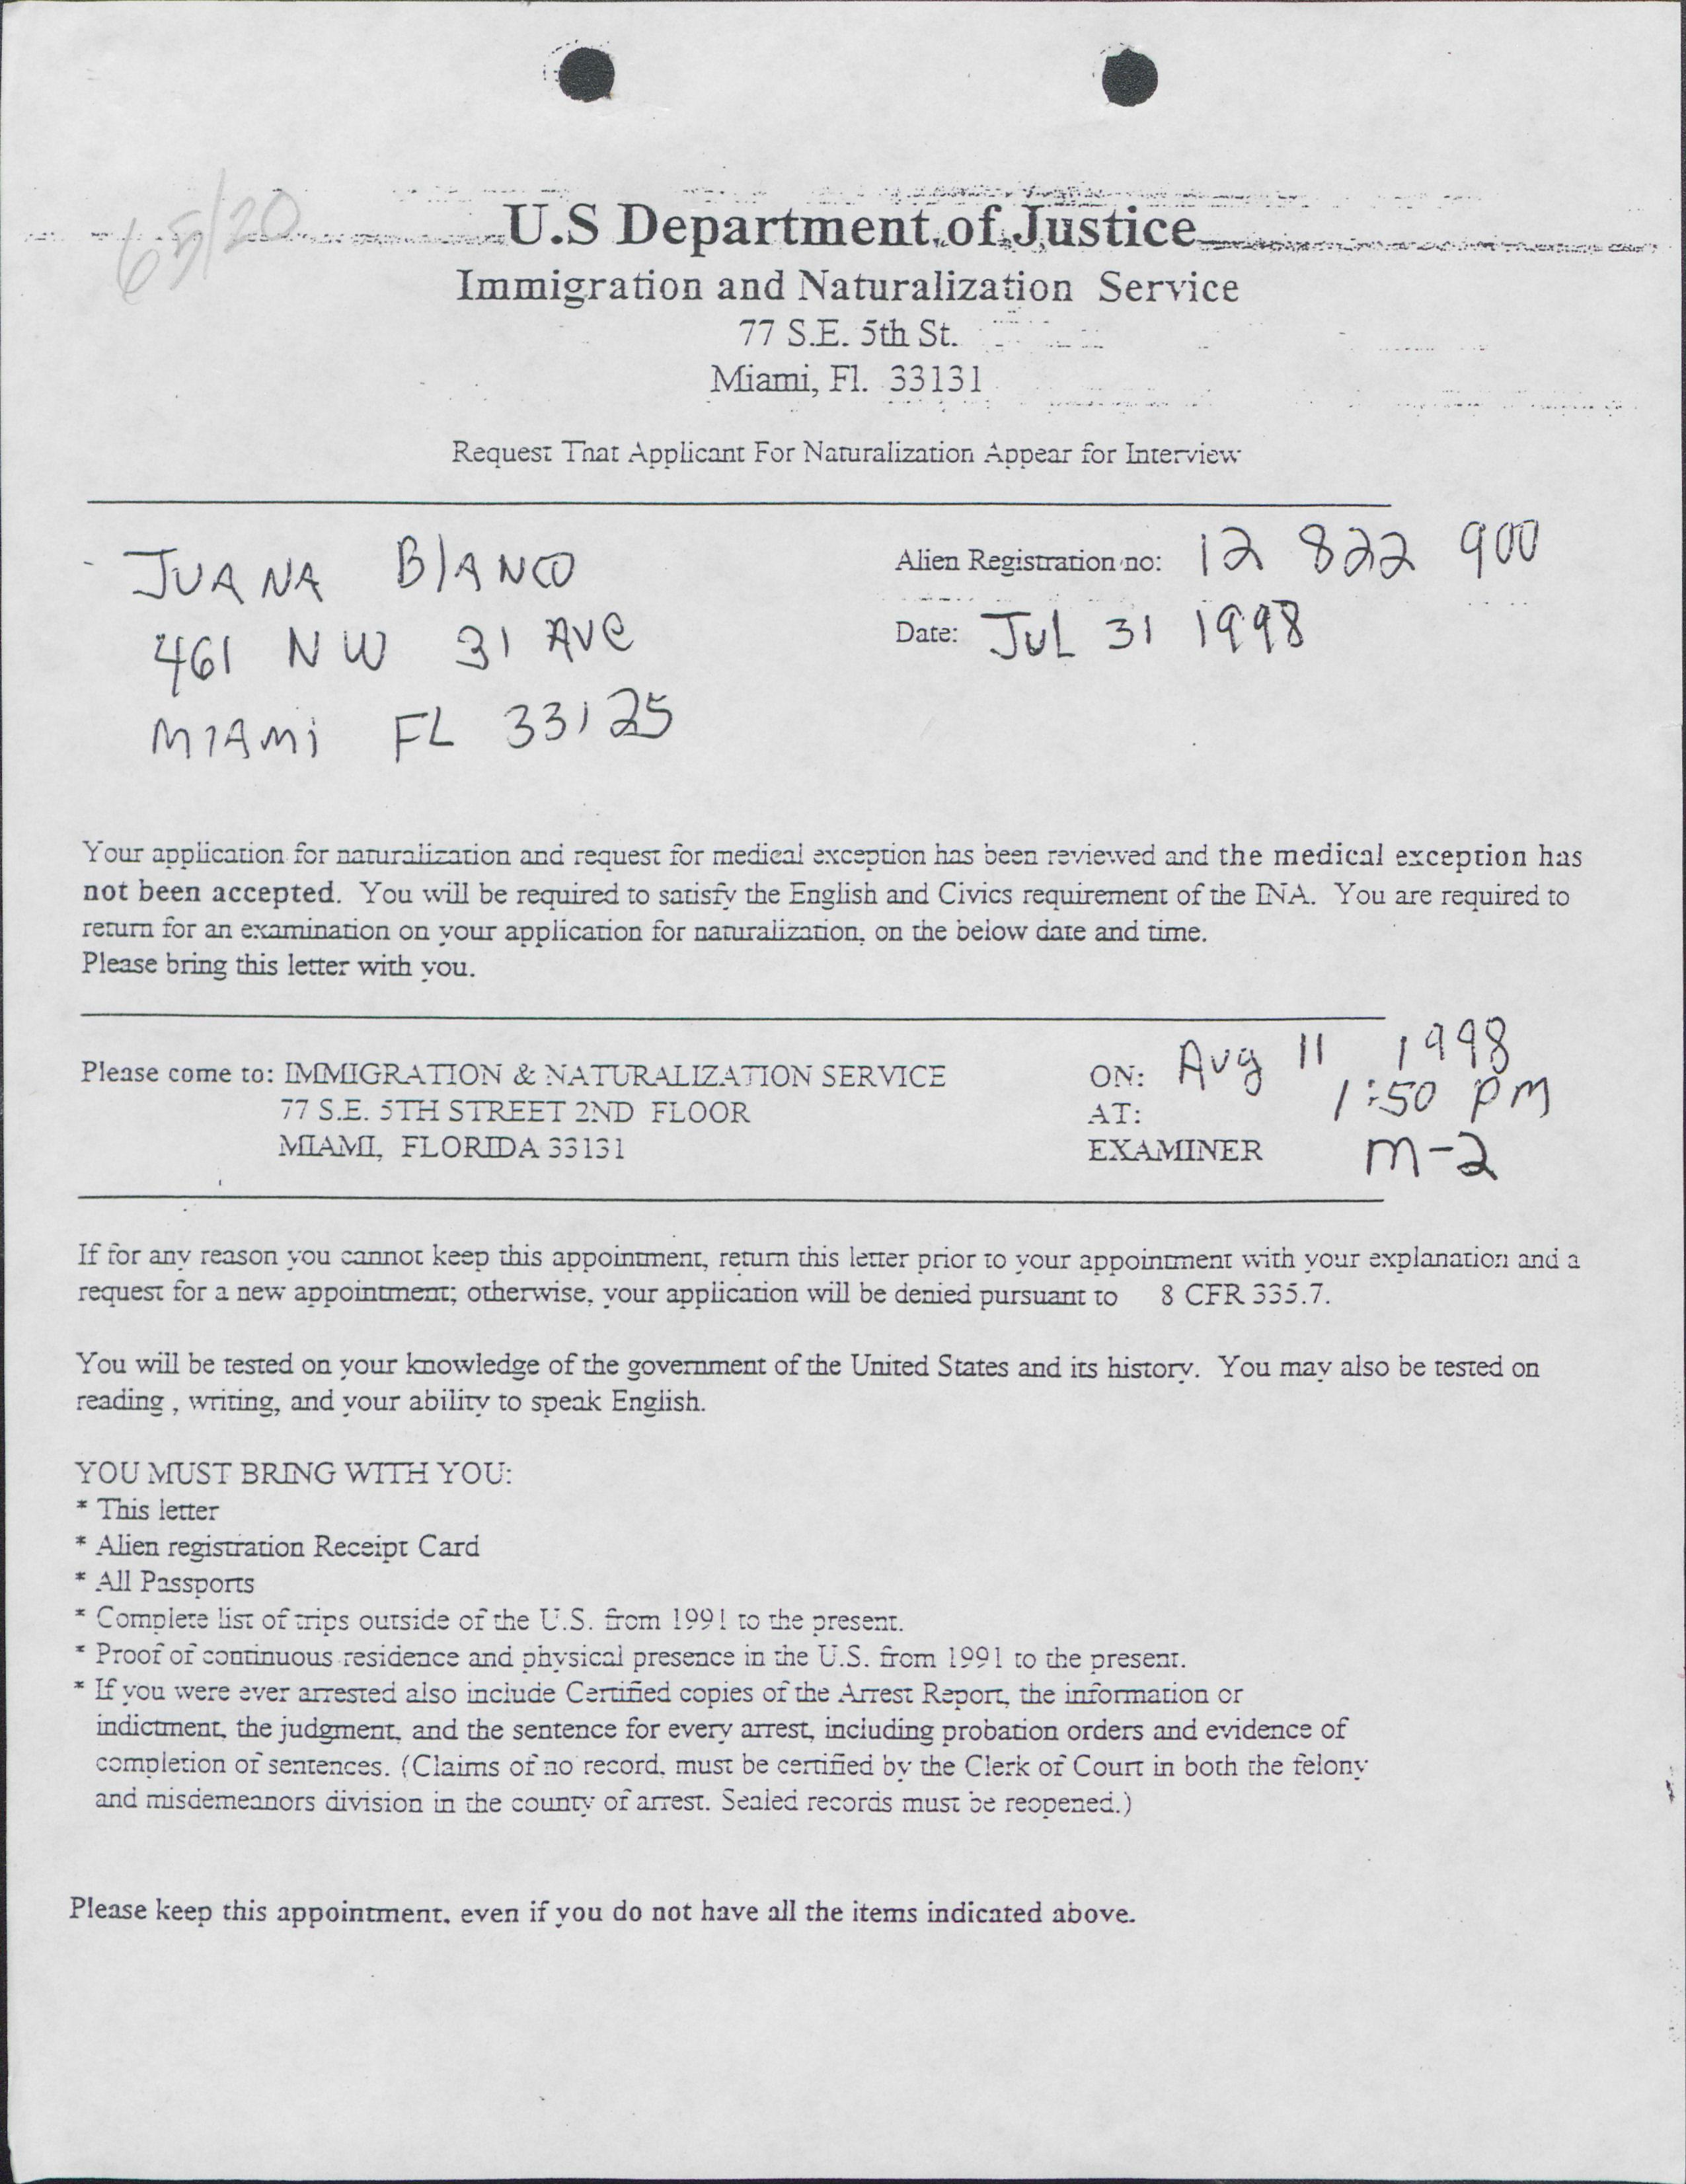 65/20
U.S Department of Justice
Immigration and Naturalization Service
77 S.E. 5th St.
Miami, Fl. 33131
Request That Applicant For Naturalization Appear for Interview
JUANA BlANCO
Alien Registration no: 12 822 900
461 NW 31 AVe
Date: JuL 31 1998
MIAMi FL 33125
Your application for naturalization and request for medical exception has been reviewed and the medical exception has
not been accepted. You will be required to satisfy the English and Civics requirement of the INA. You are required to
return for an examination on your application for naturalization, on the below date and time.
Please bring this letter with you.
Please come to: IMMIGRATION & NATURALIZATION SERVICE ON: Aug 11 1998
77 S.E. 5TH STREET 2ND FLOOR AT: 1:50 PM
MIAMI, FLORIDA 33131 EXAMINER M-2
If for any reason you cannot keep this appointment, return this letter prior to your appointment with your explanation and a
request for a new appointment; otherwise, your application will be denied pursuant to 8 CFR 335.7.
You will be tested on your knowledge of the government of the United States and its history. You may also be tested on
reading , writing, and your ability to speak English.
YOU MUST BRING WITH YOU:
* This letter
* Alien registration Receipt Card
* All Passports
* Complete list of trips outside of the U.S. from 1991 to the present.
* Proof of continuous residence and physical presence in the U.S. from 1991 to the present.
* If you were ever arrested also include Certified copies of the Arrest Report, the information or
indictment, the judgment, and the sentence for every arrest, including probation orders and evidence of
completion of sentences. (Claims of no record, must be certified by the Clerk of Court in both the felony
and misdemeanors division in the county of arrest. Sealed records must be reopened.)
Please keep this appointment, even if you do not have all the items indicated above.